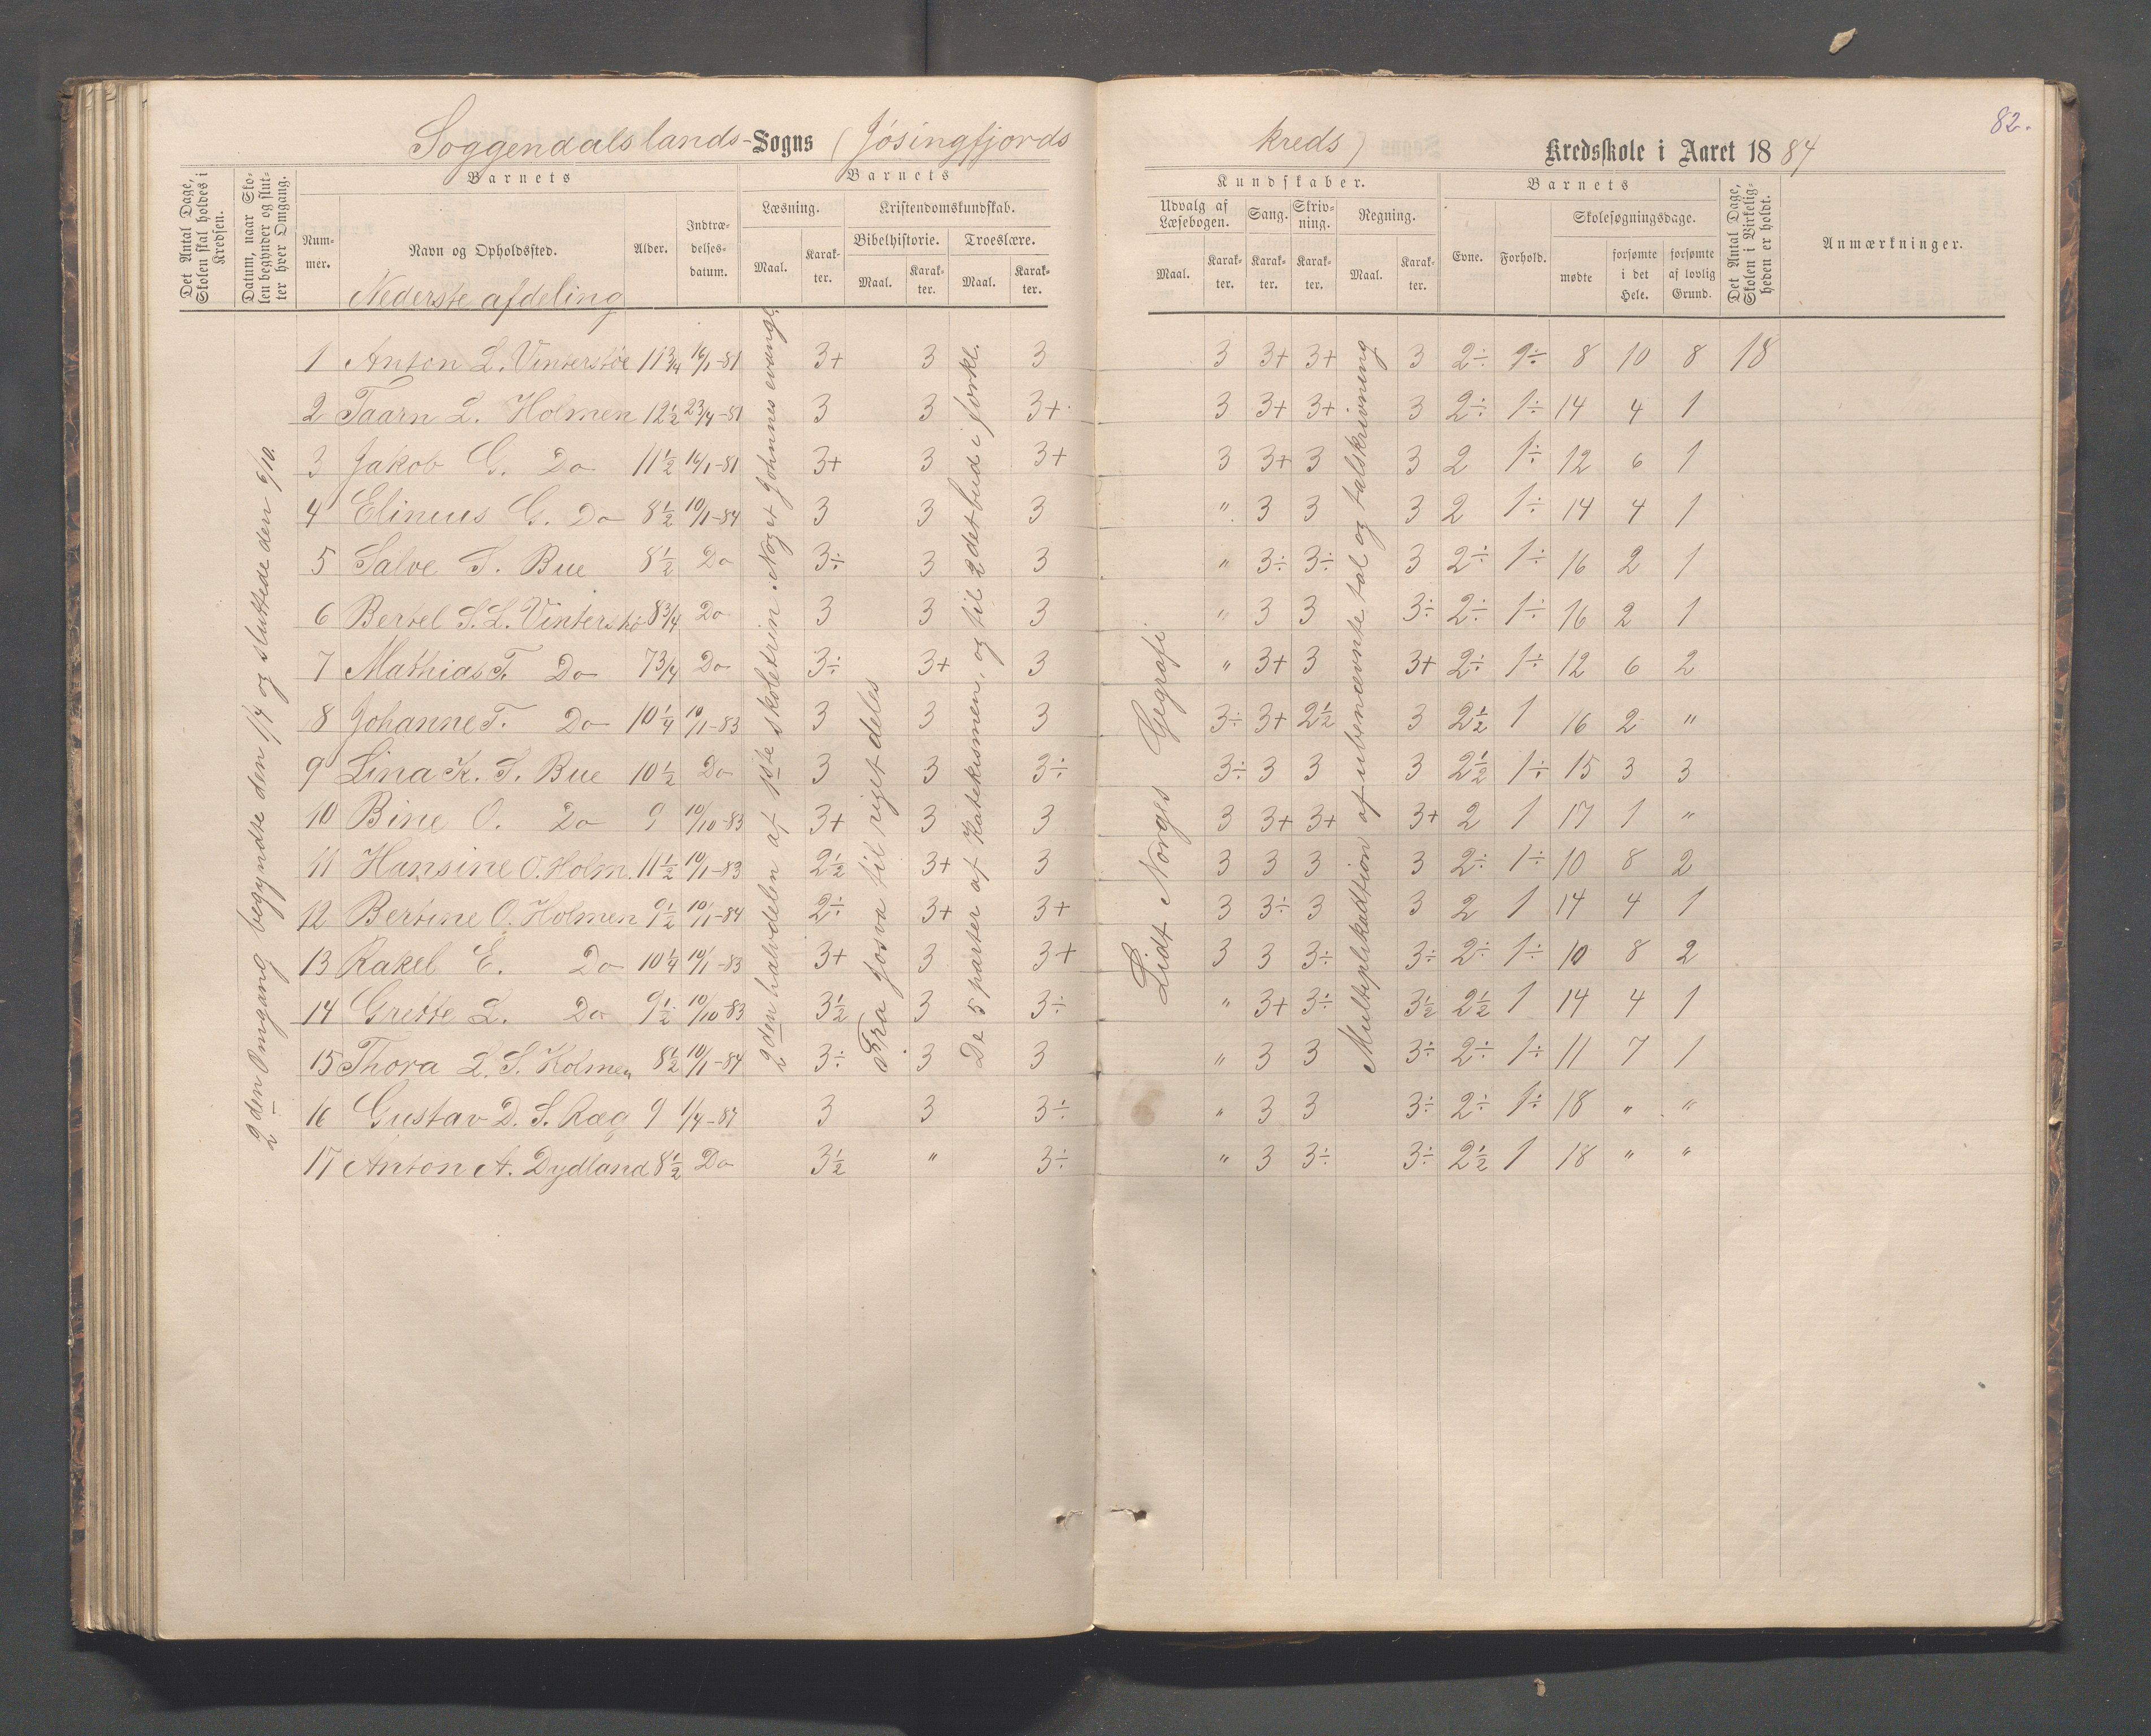 82.
Soggendals lands-Sogns (Jøsingfjords kreds) Kredsskole i Aaret 1884
Det Antal Dage, Skolen skal holdes i Kredsen.
Datum, naar Skolen begynder og slutter hver Omgang.
Barnets
Nummer.
Navn og Opholdssted.
Alder.
Indtrædelsesdatum.
Barnets
Læsning.
Maal.
Karakter.
Kristendomskundskab.
Bibelhistorie.
Maal.
Karakter.
Troeslære.
Maal.
Karakter.
Kundskaber.
Udvalg af Læsebogen.
Maal.
Karakter.
Sang.
Karakter.
Skrivning.
Karakter.
Regning.
Maal.
Karakter.
Barnets
Evne.
Forhold.
Skolesøgningsdage.
mødte
forsømte i det Hele.
forsømte af lovlig Grund.
Det Antal Dage, Skolen i Virkeligheden er holdt.
Anmærkninger.
Nederste afdeling
2den Omgang begyndte den 1/4 og sluttede den 9/10.
2den halvdelen af 1ste skoletrin. Noget Johnnes evangl
Fra Josva til riget deles
De 5 parter af Katekismen, og til 2det bud i forkl.
Lidt Norges Gegrafi
Multiplikadtion af ubenævnte tal og talskrivning
1 Anton L. Vinterstöe 11 3/4 10/1-81 3+ 3 3 3 3+ 3+ 3 2÷ 1÷ 8 10 8 18
2 Taarn L. Holmen 12 1/2 23/4-81 3 3 3+ 3 3+ 3+ 3 2÷ 1÷ 14 4 1
3 Jakob G. Do 11 1/2 10/1-81 3+ 3 3+ 3 3+ 3 3 2 1÷ 12 6 1
4 Elinius G. Do 8 1/2 10/1-84 3 3 3 " 3 3 3 2 1÷ 14 4 1
5 Salve S. Bue 8 1/2 Do 3÷ 3 3 " 3÷ 3÷ 3 2÷ 1÷ 16 2 1
6 Bertel S. L. Vinterstö 8 3/4 Do 3 3 3 " 3 3 3÷ 2÷ 1÷ 16 2 1
7 Mathias T. Do 7 3/4 Do 3÷ 3+ 3 " 3+ 3 3+ 2÷ 1÷ 12 6 2
8 Johanne T. Do 10 1/4 10/1-83 3 3 3 3÷ 3+ 2 1/2 3 2 1/2 1 16 2 "
9 Lina K. S. Bue 10 1/2 Do 3 3 3÷ 3÷ 3 3 3 2 1/2 1÷ 15 3 3
10 Bine O. Do 9 10/10-83 3+ 3 3 3 3+ 3+ 3+ 2 1 17 1 "
11 Hansine O. Holm. 11 1/2 10/1-83 2 1/2 3+ 3 3 3 3 3 2÷ 1÷ 10 8 2
12 Bertine O. Holmen 9 1/2 10/1-84 2÷ 3+ 3+ 3 3÷ 3 3 2 1 14 4 1
13 Rakel E. Do 10 1/4 10/1-83 3+ 3 3+ 3 3 3÷ 3÷ 2÷ 1÷ 10 8 2
14 Grette L. Do 9 1/2 10/10-83 3 1/2 3 3÷ " 3+ 3÷ 3 1/2 2 1/2 1 14 4 1
15 Thora L. S. Holmen 8 1/2 10/1-84 3÷ 3 3 " 3 3 3÷ 2÷ 1÷ 11 7 1
16 Gustav D. S. Ræg 9 1/4-84 3 3 3÷ " 3 3 3÷ 2÷ 1÷ 18 " "
17 Anton A. Dydland 8 1/2 Do 3 1/2 " 3÷ " 3 3÷ 3÷ 2 1/2 1 18 " "